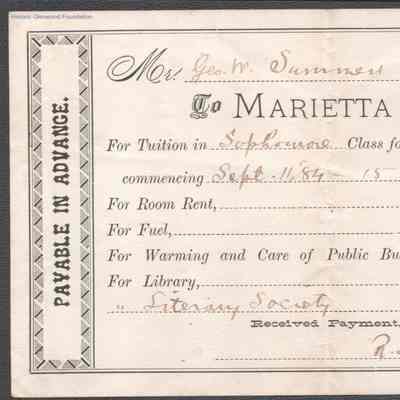 Historic Glenwood Foundation
PAYABLE IN ADVANCE.
Mr. Geo. W. Summers
To MARIETTA
For Tuition in Sophomore Class fo
commencing Sept. 11, '84 - 15
For Room Rent,
For Fuel,
For Warming and Care of Public Bu
For Library,
" Literary Society
Received Payment,
R.